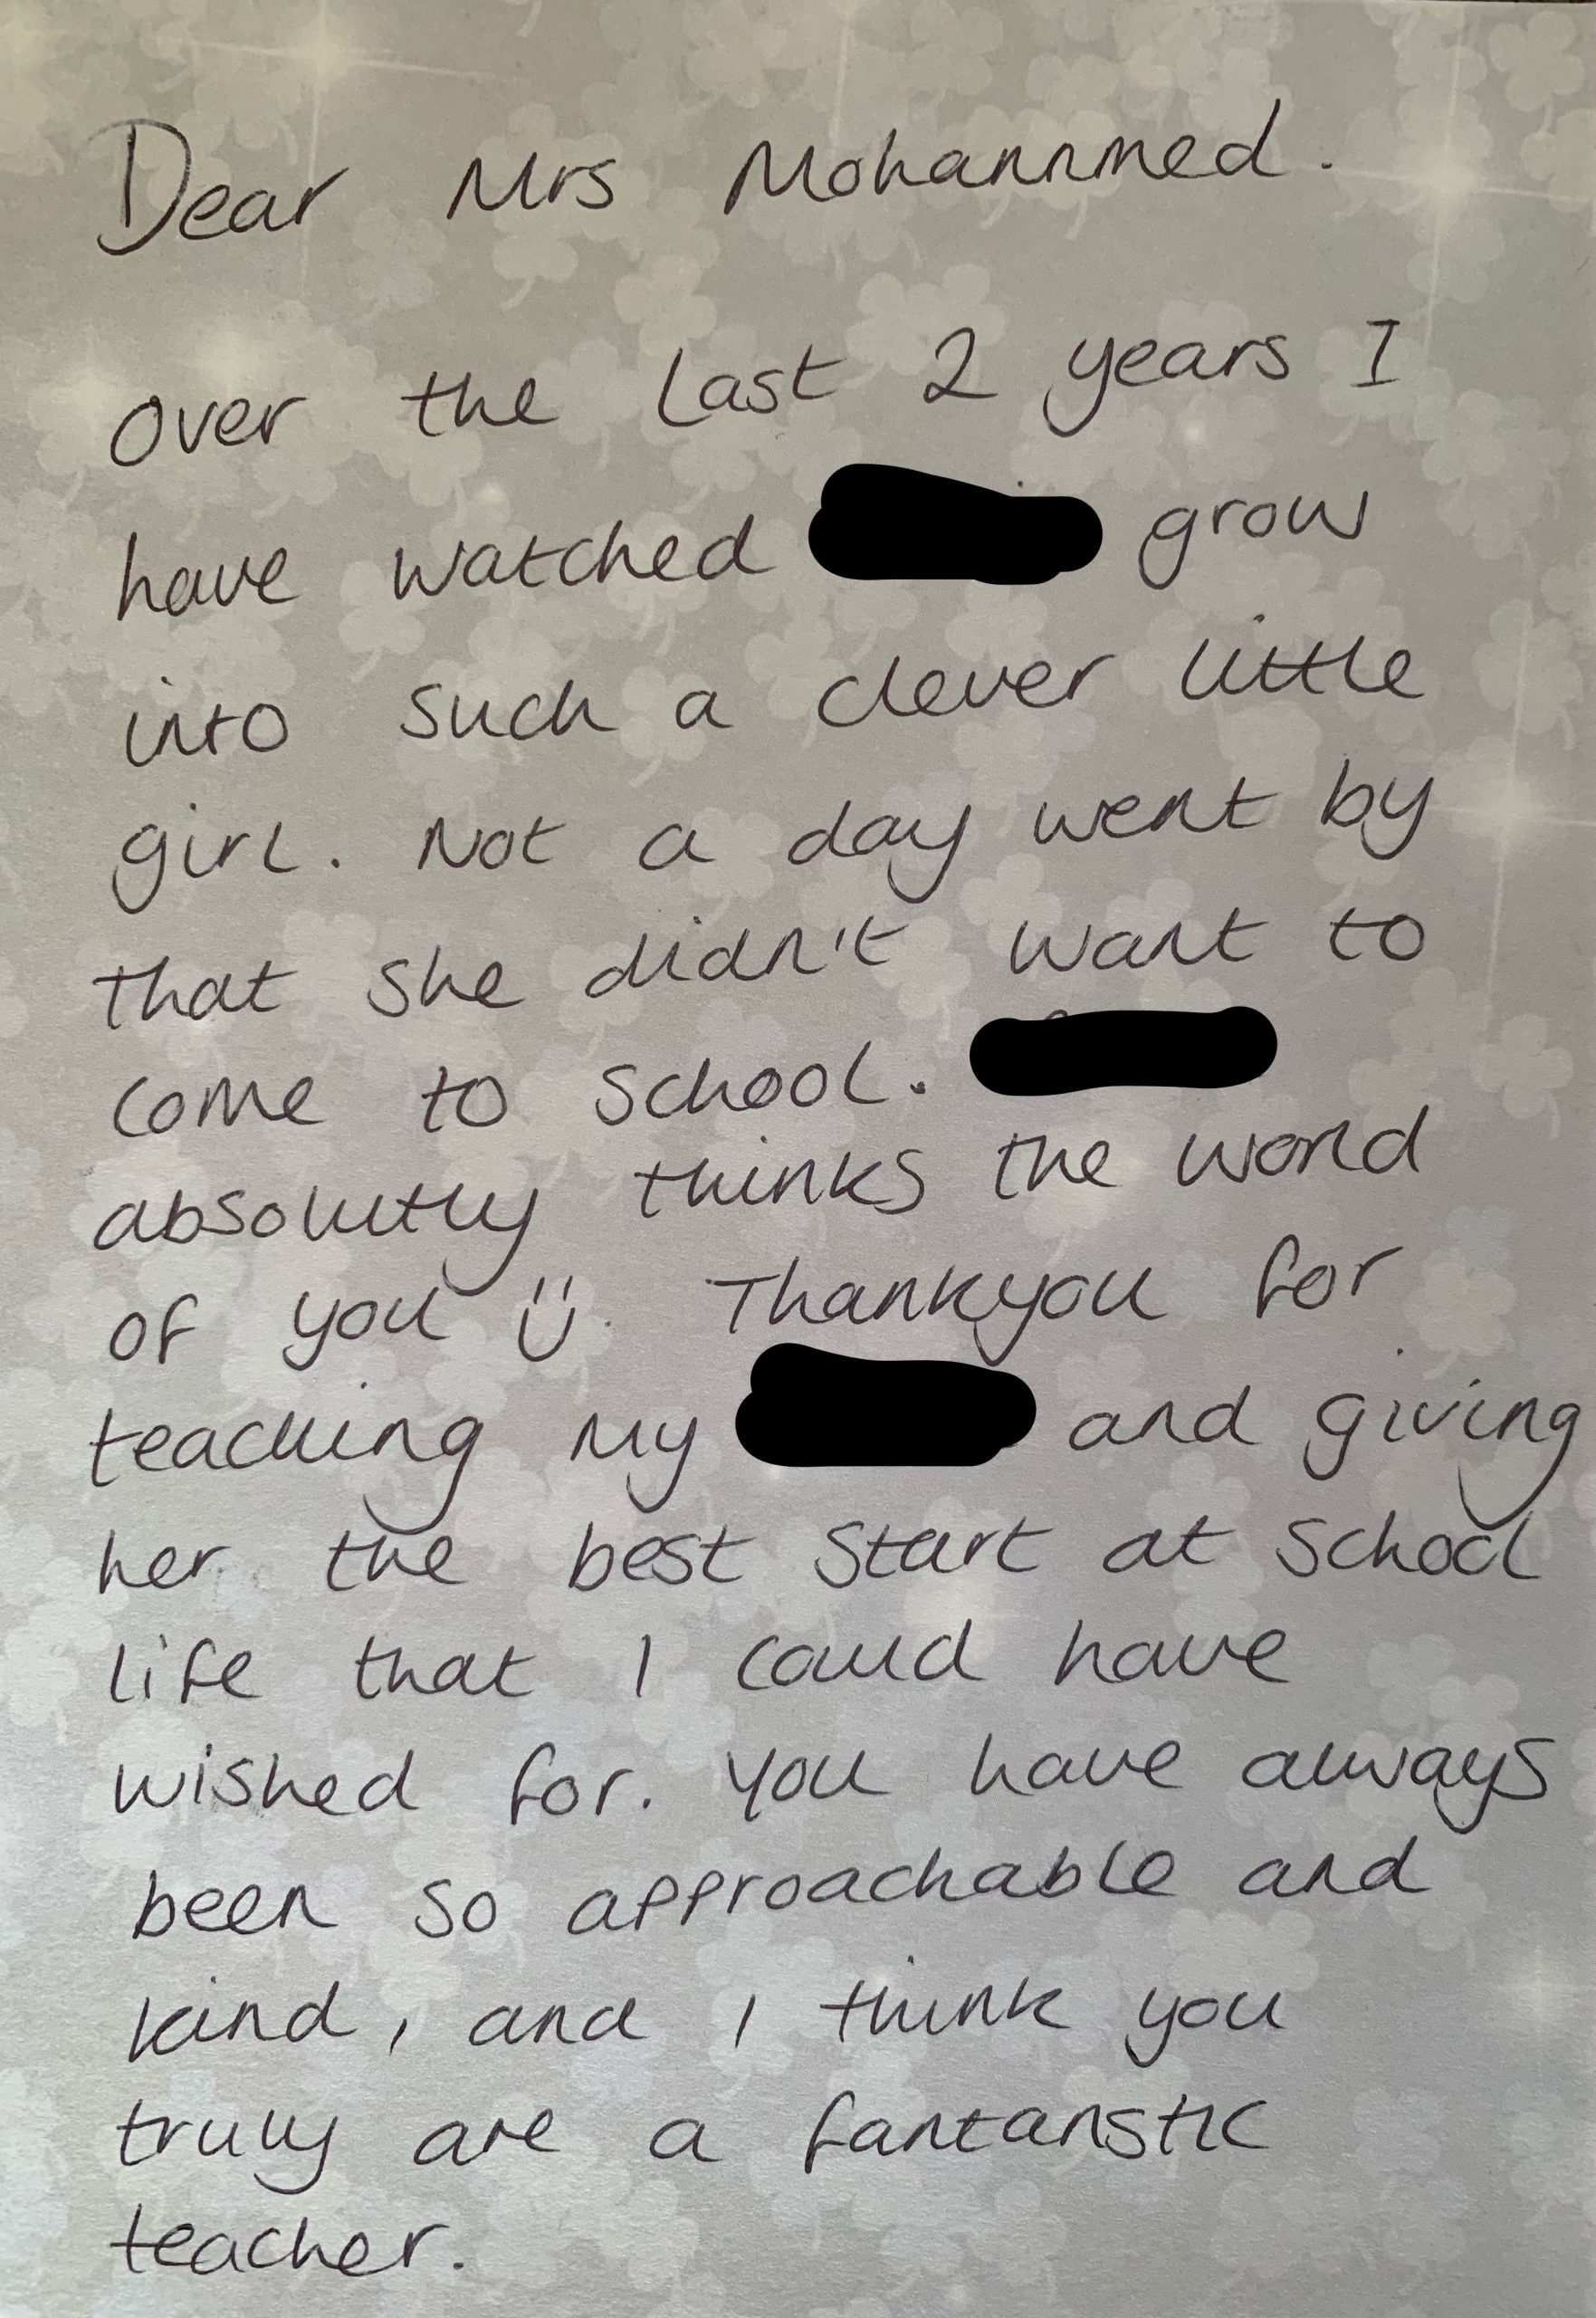 Dear Mrs Mohannmed.
Over the last 2 years I
have watched grow
into such a clever little
girl. Not a day went by
that she didn't want to
come to school.
absolutly thinks the world
of you Ü. Thankyou for
teaching my and giving
her the best start at school
life that I could have
wished for. You have always
been so approachable and
kind, and I think you
truly are a fantanstic
teacher.